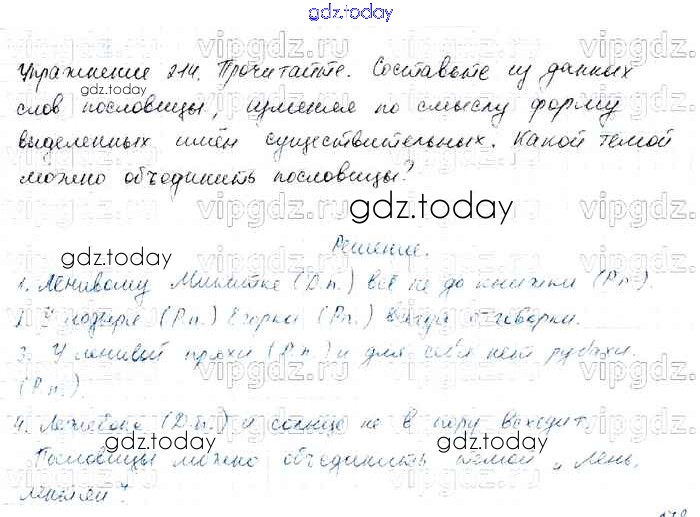 gdz.today
Упражнение 214. Прочитайте. Составьте из данных
слов пословицы, изменяя по смыслу форму
выделенных имён существительных. Какой темой
можно объединить пословицы?
gdz.today
Решение.
1. Ленивому Микитке (Д.п.) всё не до книжки (Р.п.).
2. У лодыря (Р.п.) Егорки (Р.п.) всегда отговорки.
3. У ленивой пряхи (Р.п.) и для себя нет рубахи.
(Р.п.).
4. Лежебоке (Д.п.) и солнце не в пору всходит.
Пословицы можно объединить темой „Лень,